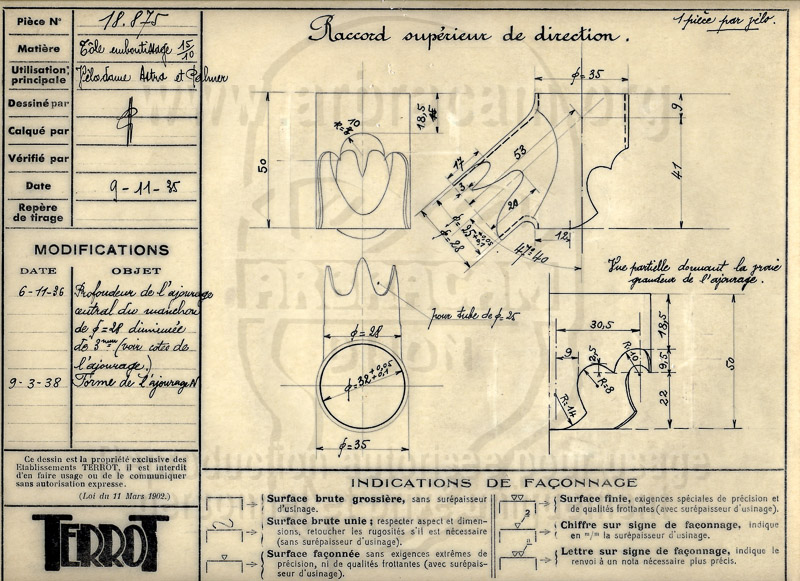 Pièce N° 18.875
Matière Tôle emboutissage 15/10
Utilisation principale Vélo dame Astra et Palmer
Dessiné par
Calqué par
Vérifié par
Date 9-11-35
Repère de tirage
MODIFICATIONS
DATE OBJET
6-11-36 Profondeur de l'ajourage
central du manchon
de φ=28 diminuée
de 3mm (voir cotes de
l'ajourage.)
9-3-38 Forme de l'ajourage N
Ce dessin est la propriété exclusive des
Etablissements TERROT, il est interdit
d'en faire usage ou de le communiquer
sans autorisation expresse.
(Loi du 11 Mars 1902.)
TERROT
Raccord supérieur de direction.
1 pièce par vélo.
φ=35
50
10
18,5
17
3
53
20
φ=25 +0,05 +0,1
φ=28
47°40
12
9
41
pour tube de φ=25
φ=28
φ=32 +0,05 +0,1
φ=35
Vue partielle donnant la vraie
grandeur de l'ajourage.
30,5
9
R=10
R=8
R=14
18,5
9,5
22
50
INDICATIONS DE FAÇONNAGE
Surface brute grossière, sans surépaisseur
d'usinage.
Surface brute unie ; respecter aspect et dimen-
sions, retoucher les rugosités s'il est nécessaire
(sans surépaisseur d'usinage).
Surface façonnée sans exigences extrêmes de
précision, ni de qualités frottantes (avec surépais-
seur d'usinage).
Surface finie, exigences spéciales de précision et
de qualités frottantes (avec surépaisseur d'usinage).
Chiffre sur signe de faconnage, indique
en m/m la surépaisseur d'usinage.
Lettre sur signe de façonnage, indique le
renvoi à un nota nécessaire plus précis.